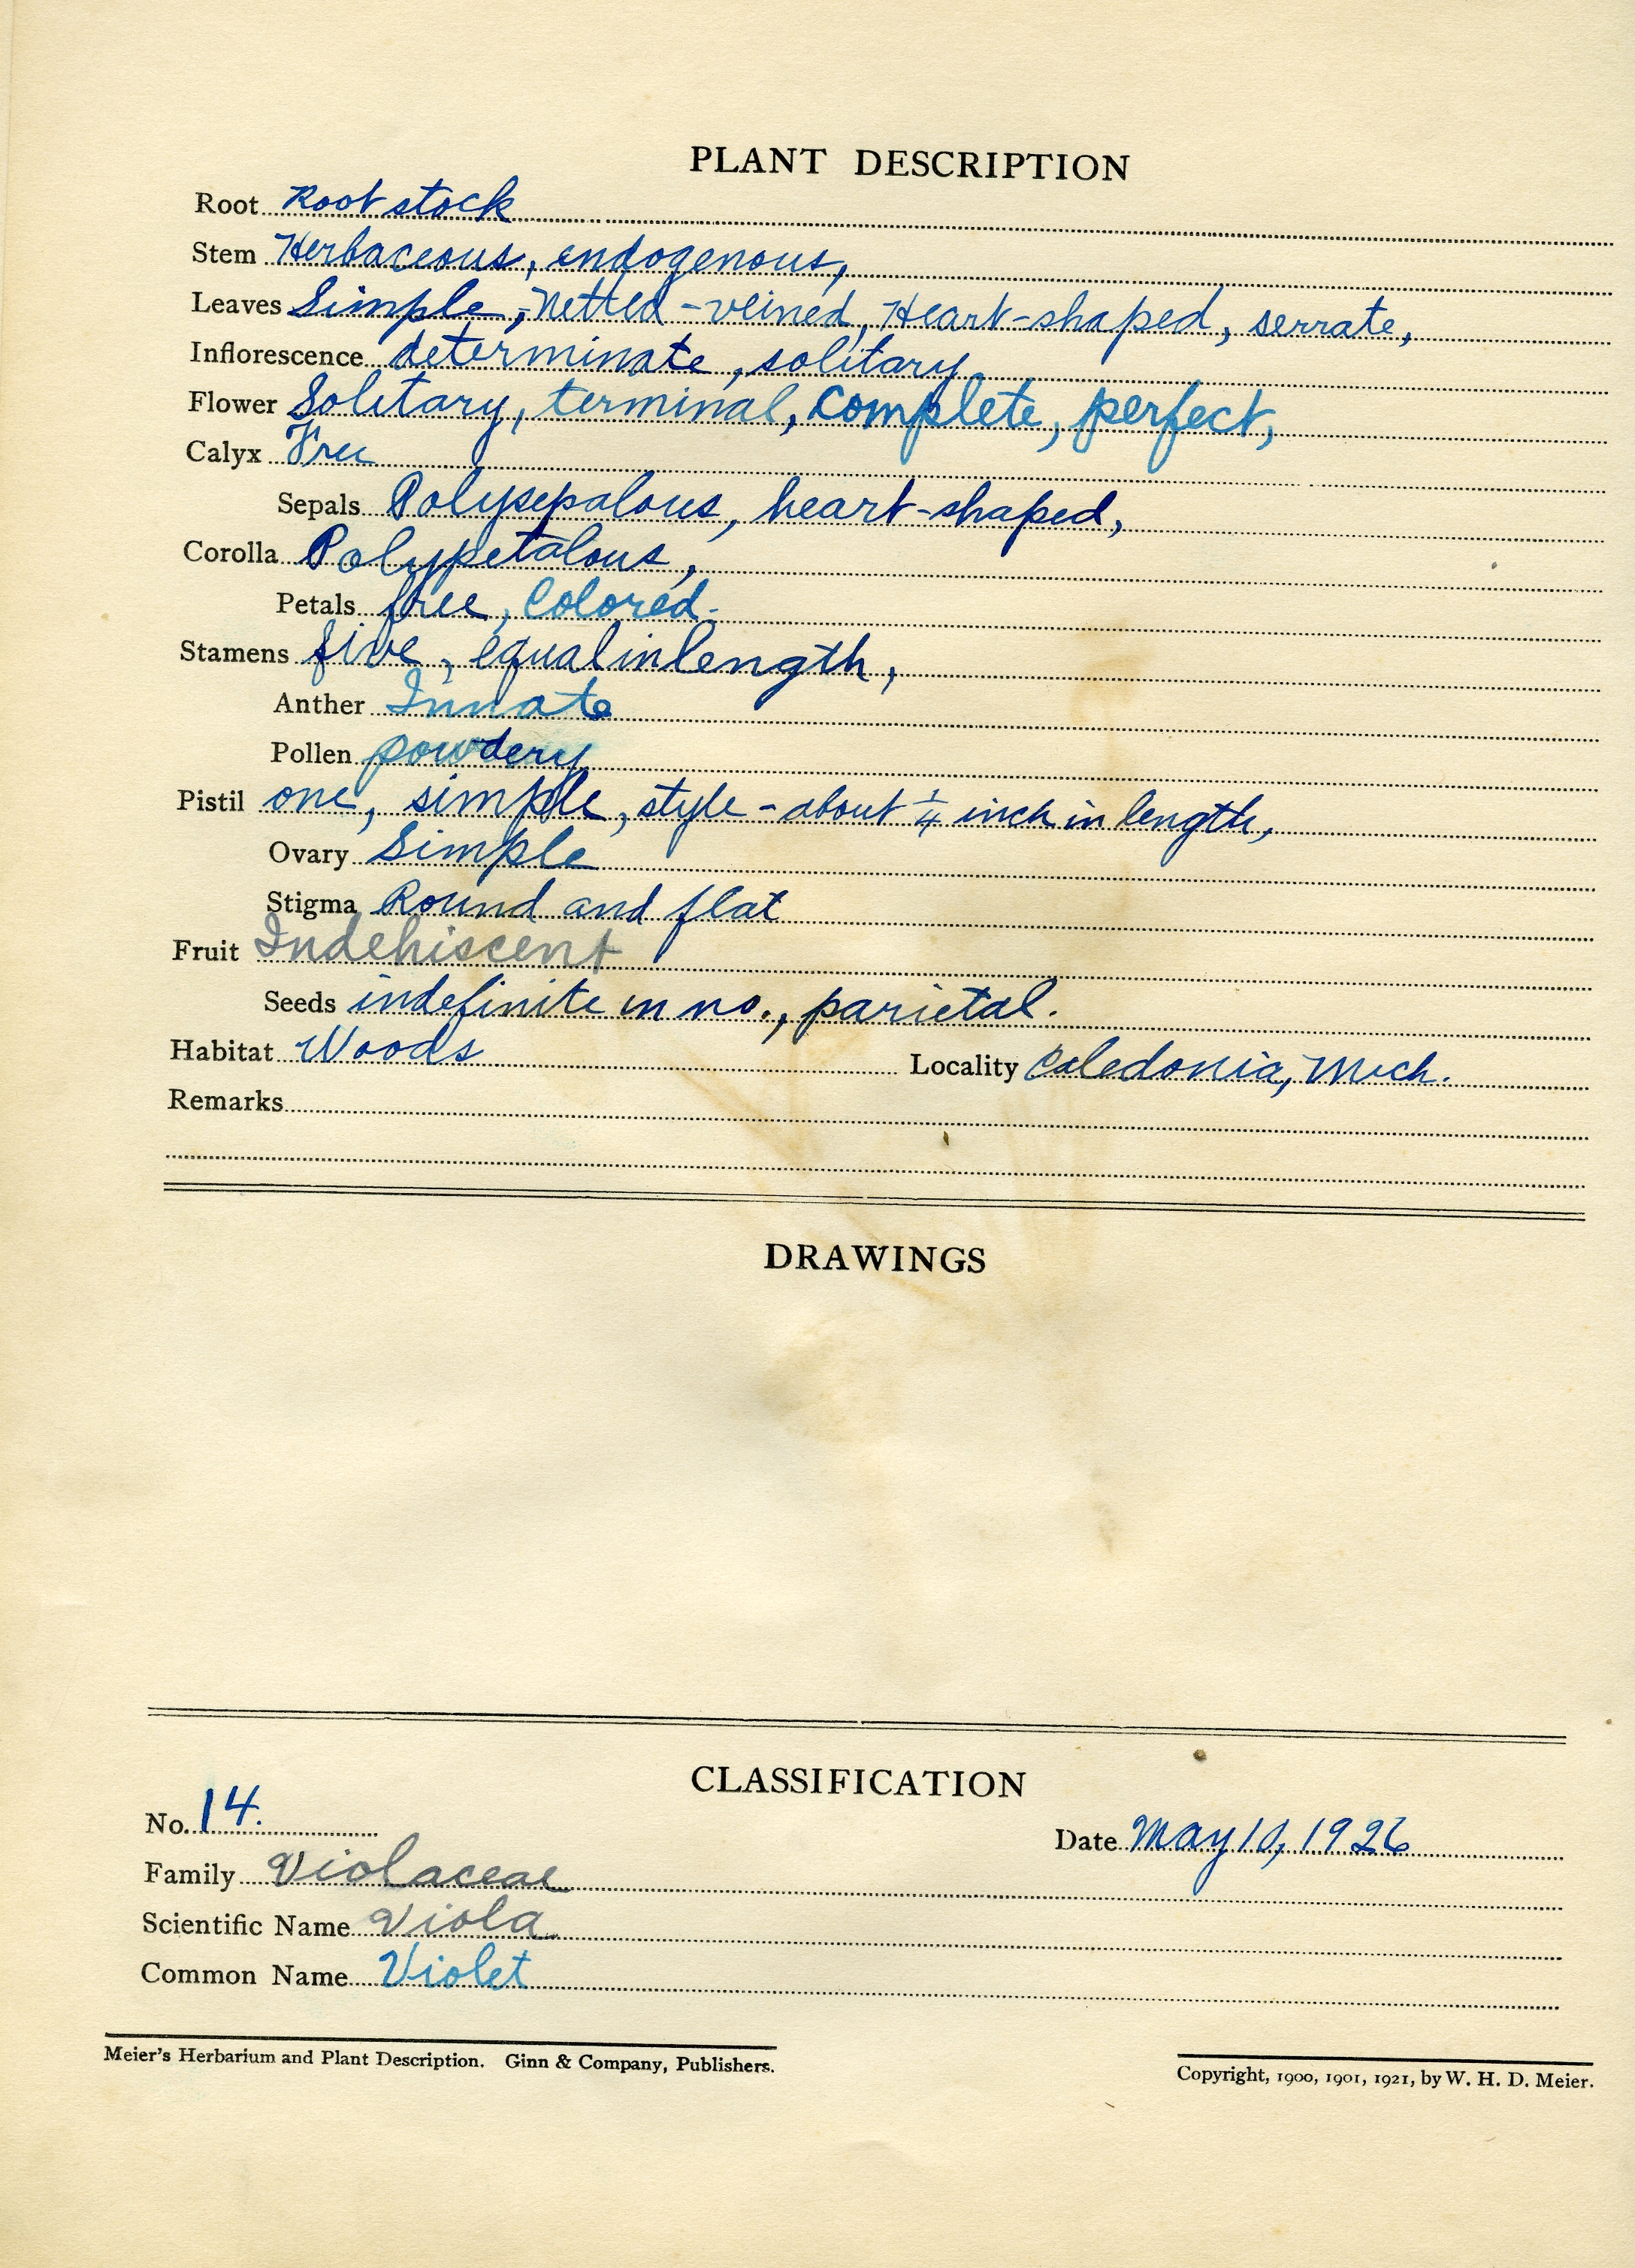 PLANT DESCRIPTION
Root Root stock
Stem Herbaceous, endogenous,
Leaves Simple, Netted-veined, Heart-shaped, serrate,
Inflorescence determinate, solitary
Flower Solitary, terminal, complete, perfect,
Calyx Free
Sepals Polysepalous, heart-shaped,
Corolla Polypetalous,
Petals free, Colored.
Stamens five, equal in length,
Anther Innate
Pollen powdery
Pistil one, simple, style - about 1/4 inch in length,
Ovary Simple
Stigma Round and flat
Fruit Indehiscent
Seeds indefinite in no., parietal.
Habitat Woods Locality Caledonia, Mich.
Remarks
DRAWINGS
CLASSIFICATION
No. 14. Date May 10, 1926
Family Violaceae
Scientific Name Viola
Common Name Violet
Meier's Herbarium and Plant Description. Ginn & Company, Publishers. Copyright, 1900, 1901, 1921, by W. H. D. Meier.